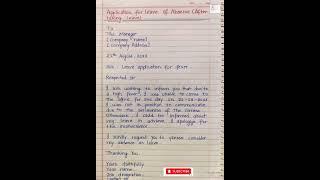 Application for Leave Of Absence (After
taking leave)
To
The Manager
[Company Name]
[Company Address]
25th August,
Sub: Leave application for fever
Respected Sir
I am writing to inform you that due to
a high fever, I was unable to come to
the office for one day on
I was not in position to communicate
due to the of the
Otherwise, I could've informed about
my leave in advance. I apologise for
the inconvenience.
I kindly request you to please consider
my absence as leave.
Thanking You
Yours faithfully
Your name
Job designation
SUBSCRIBE